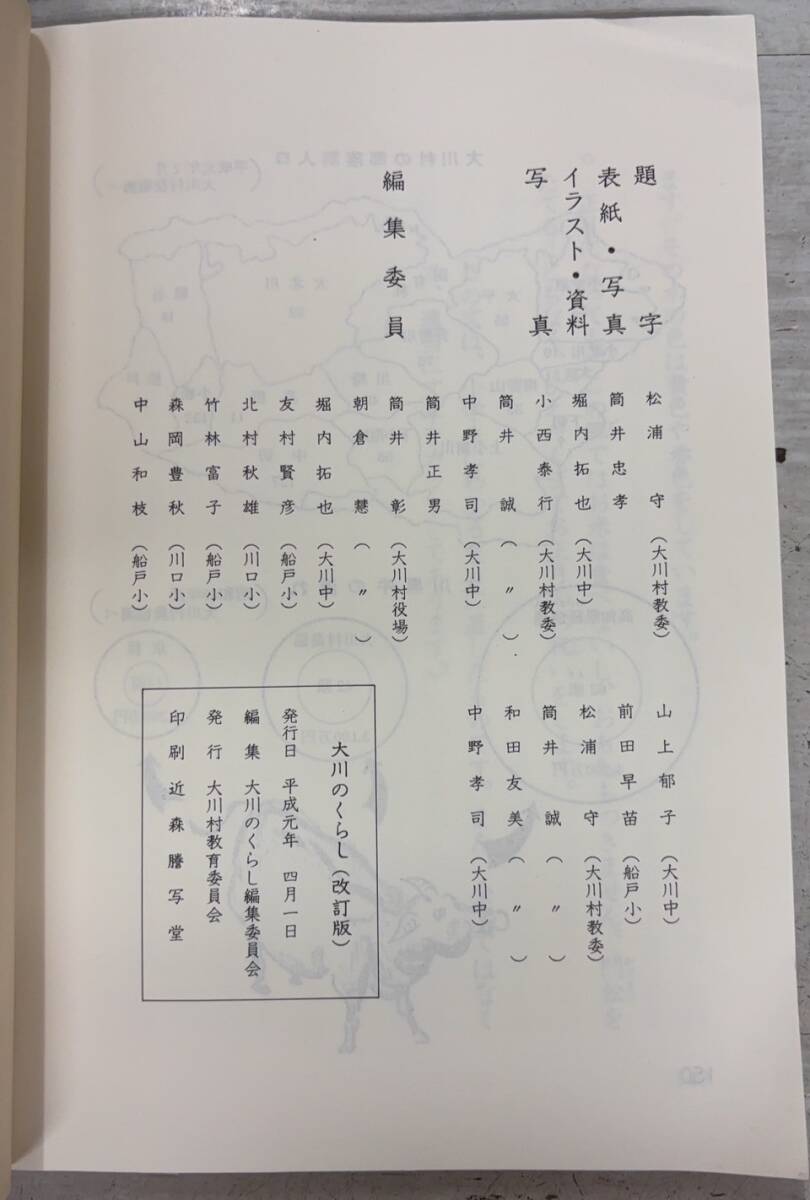 題字 松浦守(大川村教委)
表紙・写真 筒井忠孝
イラスト・資料 堀内拓也(大川中)
写真 小西泰行(大川村教委)
筒井誠(〃)
中野孝司(大川中)
筒井正男
編集委員 筒井彰(大川村役場)
朝倉慧(〃)
堀内拓也(大川中)
友村賢彦(船戸小)
北村秋雄(川口小)
竹林富子(船戸小)
森岡豊秋(川口小)
中山和枝(船戸小)
山上郁子(大川中)
前田早苗(船戸小)
松浦守(大川村教委)
筒井誠(〃)
和田友美(〃)
中野孝司(大川中)
大川のくらし(改訂版)
発行日 平成元年 四月一日
編集 大川のくらし編集委員会
発行 大川村教育委員会
印刷 近森謄写堂